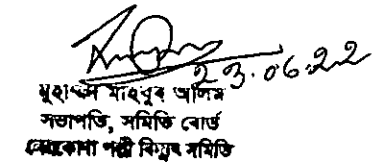 23.06.22
মুহাম্মদ মাহবুব আলিম
সভাপতি, সমিতি বোর্ড
নেত্রকোণা পল্লী বিদ্যুৎ সমিতি